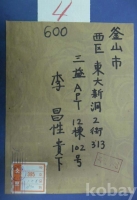 4
600
釜山市
西區 東大新洞 2街 313
三益 APT 12棟 102号
李 昌性 貴下
kobay